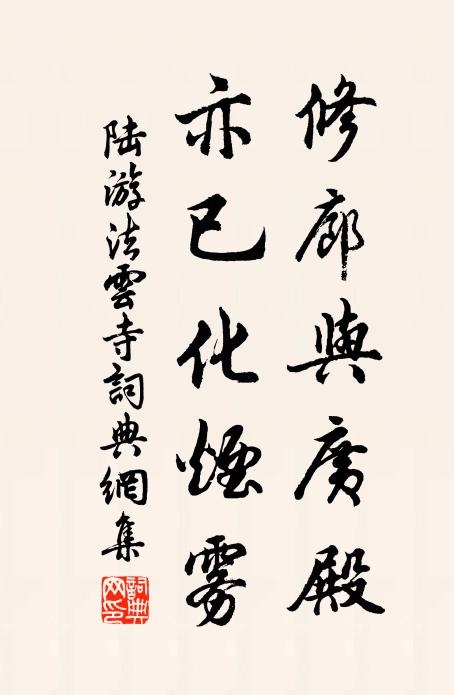 修廊與廣殿
亦已化煙霧
陸游法雲寺詞典網集
詞典網印